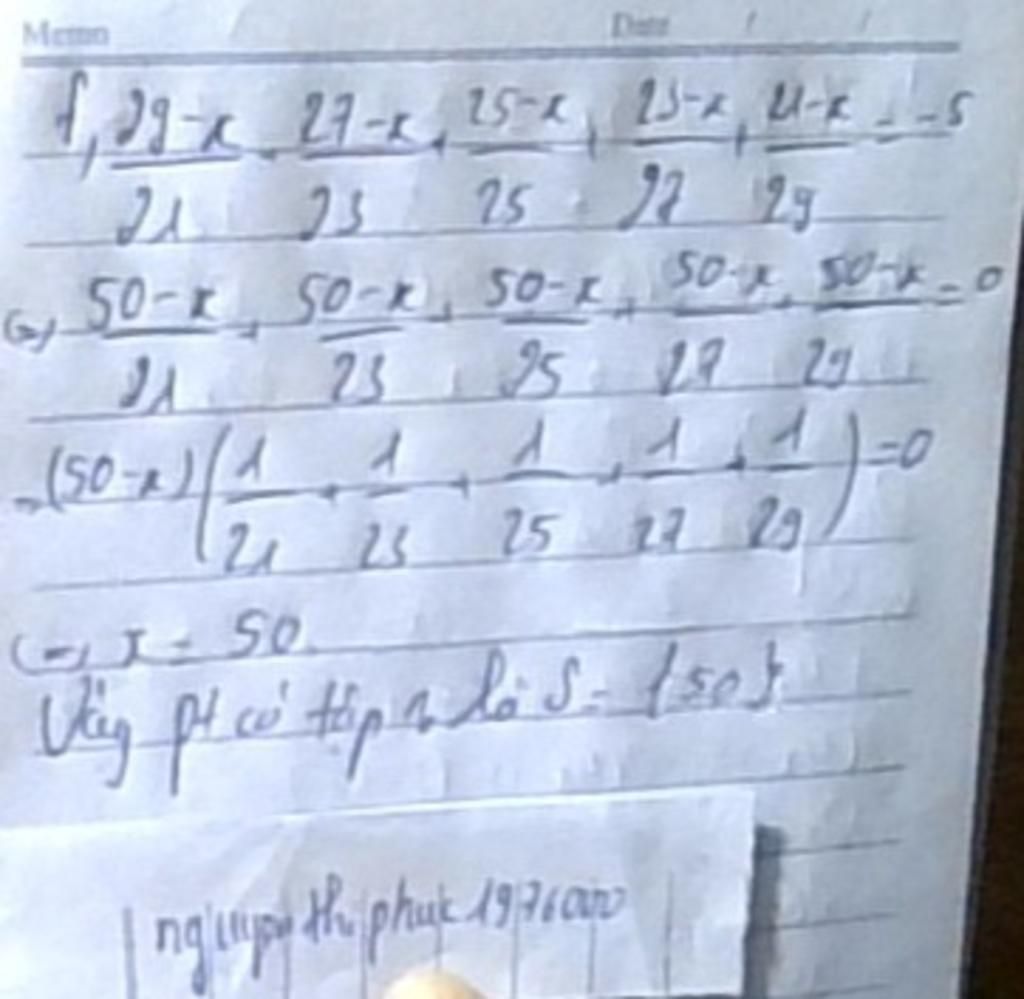 Memo Date / /
f, 29-x/21 + 27-x/23 + 25-x/25 + 23-x/27 + 21-x/29 = -5
(=) 50-x/21 + 50-x/23 + 50-x/25 + 50-x/27 + 50-x/29 = 0
= (50-x)(1/21 + 1/23 + 1/25 + 1/27 + 1/29) = 0
(=) x = 50
Vậy pt có tập n là S = {50}
nguyen thi phuc 1976000